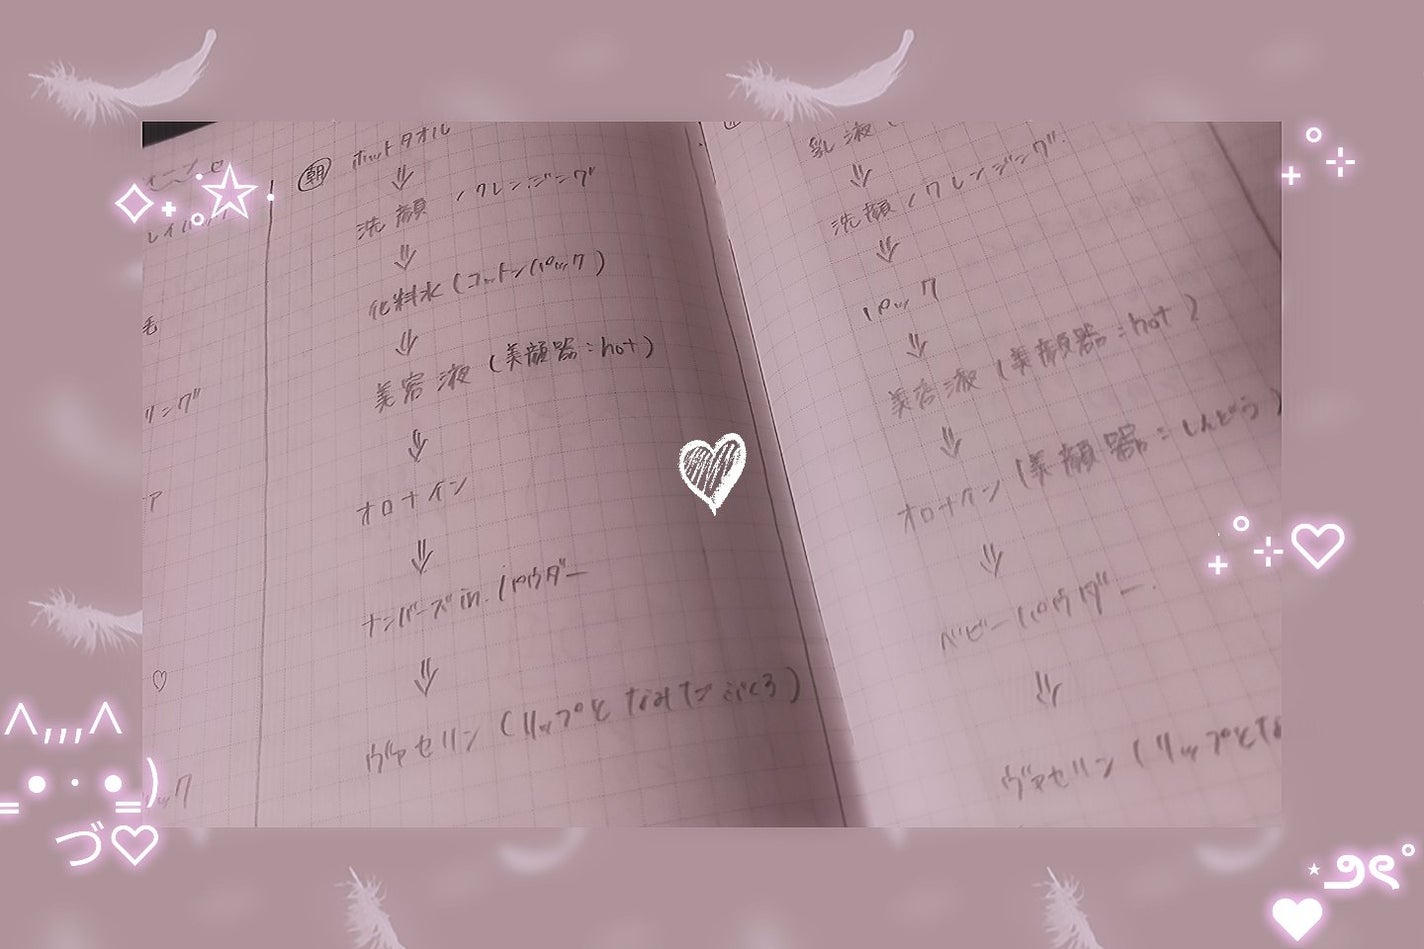 レイ
毛
リング
ア
♡
ック
朝 ホットタオル
⇓
洗顔 / クレンジング
⇓
化粧水 (コットンパック)
⇓
美容液 (美顔器:hot)
⇓
オロナイン
⇓
ナンバーズin.パウダー
⇓
ヴァセリン (リップとなみだぶくろ)
乳液 (
⇓
洗顔 / クレンジング
⇓
パック
⇓
美容液 (美顔器:hot)
⇓
オロナイン (美顔器:しんどう)
⇓
ベビーパウダー
⇓
ヴァセリン (リップとな
づ♡